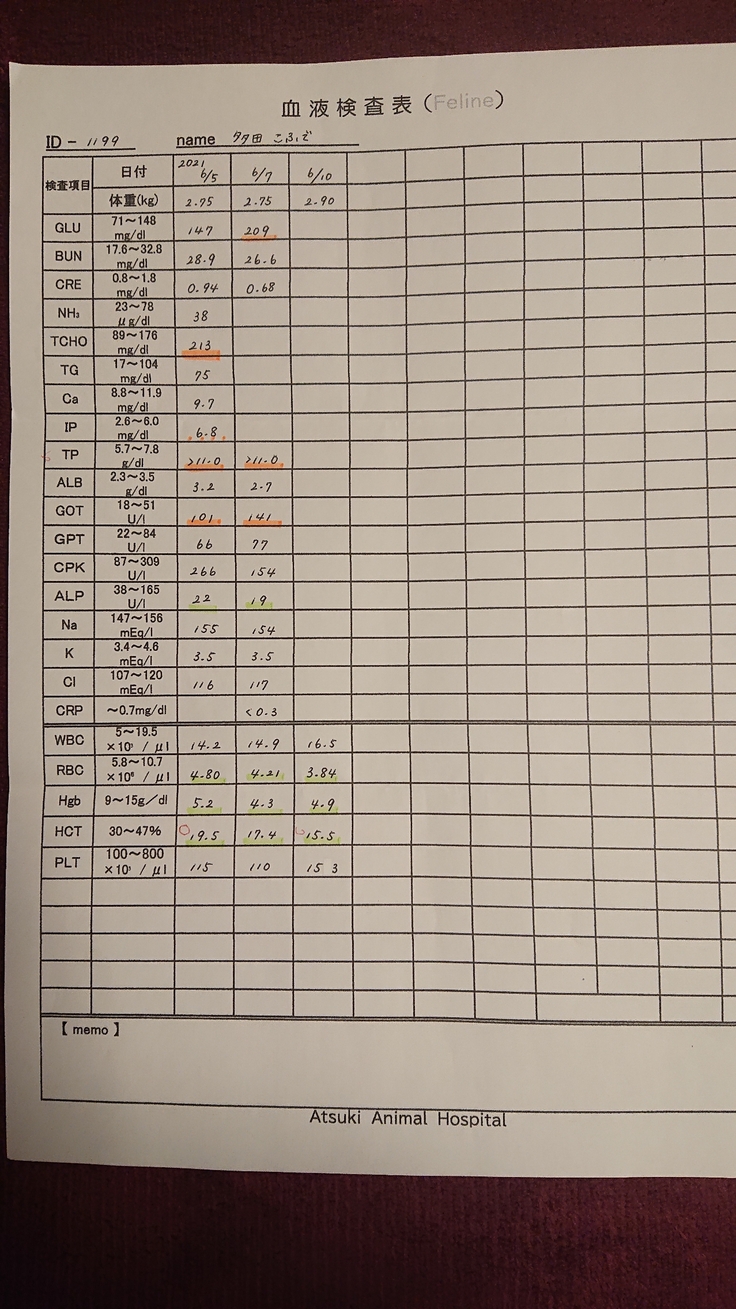 血液検査表（Feline）
ID - 1199 name 多田 こふで
検査項目 日付 2021 6/5 6/7 6/10
体重(kg) 2.75 2.75 2.90
GLU 71～148 mg/dl 147 209
BUN 17.6～32.8 mg/dl 28.9 26.6
CRE 0.8～1.8 mg/dl 0.94 0.68
NH₃ 23～78 μg/dl 38
TCHO 89～176 mg/dl 213
TG 17～104 mg/dl 75
Ca 8.8～11.9 mg/dl 9.7
IP 2.6～6.0 mg/dl 6.8
TP 5.7～7.8 g/dl >11.0 >11.0
ALB 2.3～3.5 g/dl 3.2 2.7
GOT 18～51 U/l 101 141
GPT 22～84 U/l 66 77
CPK 87～309 U/l 266 154
ALP 38～165 U/l 22 19
Na 147～156 mEq/l 155 154
K 3.4～4.6 mEq/l 3.5 3.5
Cl 107～120 mEq/l 116 117
CRP ～0.7mg/dl <0.3
WBC 5～19.5 ×10³ / μl 14.2 14.9 16.5
RBC 5.8～10.7 ×10⁶ / μl 4.80 4.21 3.84
Hgb 9～15g／dl 5.2 4.3 4.9
HCT 30～47% 19.5 17.4 15.5
PLT 100～800 ×10³ / μl 115 110 153
【 memo 】
Atsuki Animal Hospital